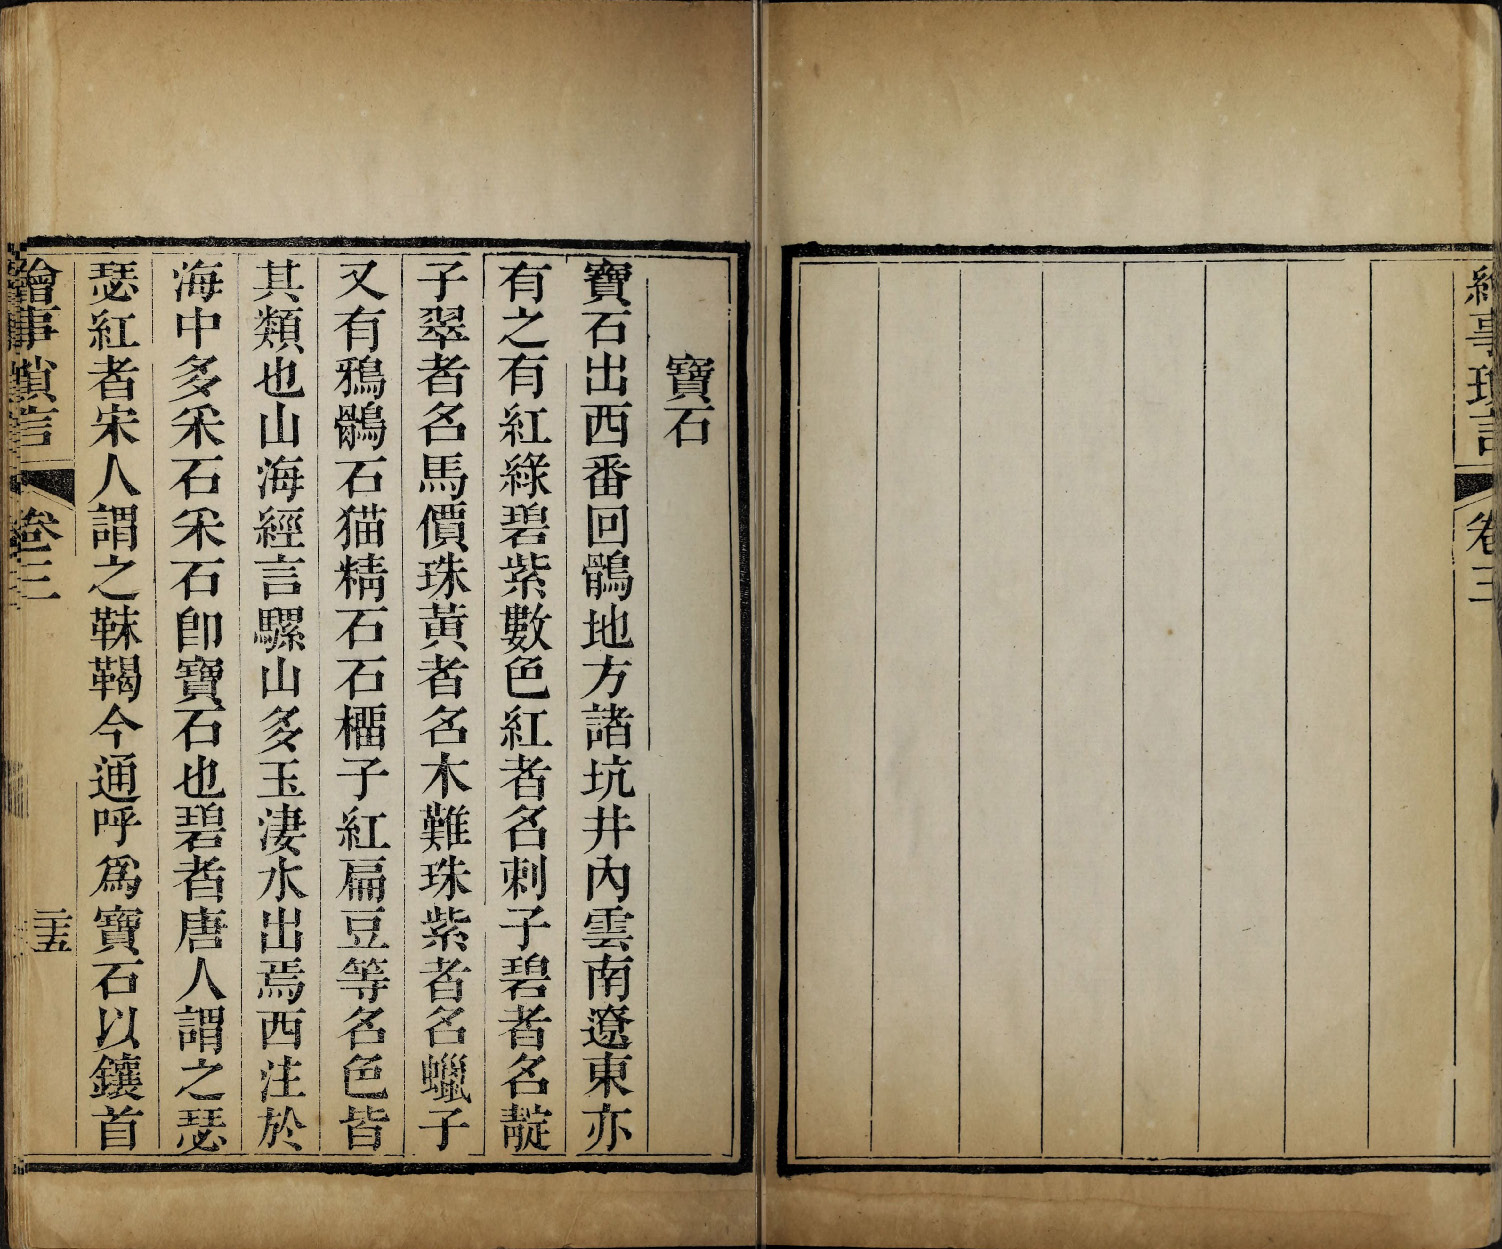 繪事瑣言
卷三
寶石
寶石出西番回鶻地方諸坑井內雲南遼東亦
有之有紅綠碧紫數色紅者名刺子碧者名靛
子翠者名馬價珠黃者名木難珠紫者名蠟子
又有鴉鶻石猫精石石榴子紅扁豆等名色皆
其類也山海經言騩山多玉淒水出焉西注於
海中多采石采石卽寶石也碧者唐人謂之瑟
瑟紅者宋人謂之靺鞨今通呼爲寶石以鑲首
繪事瑣言
卷三
二十五